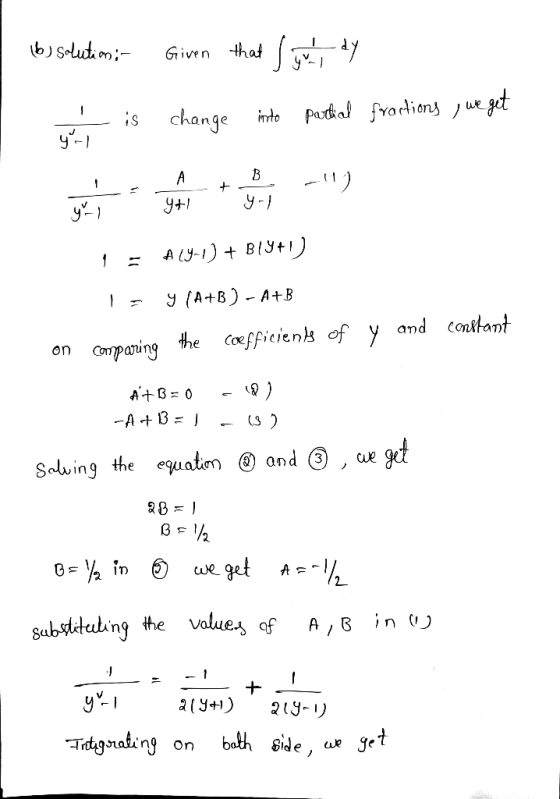 (b) Solution:- Given that ∫ 1/(y²-1) dy
1/(y²-1) is change into partial fractions, we get
1/(y²-1) = A/(y+1) + B/(y-1) -(1)
1 = A(y-1) + B(y+1)
1 = y (A+B) - A+B
on comparing the coefficients of y and constant
A+B=0 - (2)
-A+B=1 - (3)
Solving the equation ② and ③, we get
2B=1
B=1/2
B=1/2 in ② we get A=-1/2
substituting the values of A, B in (1)
1/(y²-1) = -1/(2(y+1)) + 1/(2(y-1))
Integrating on both side, we get